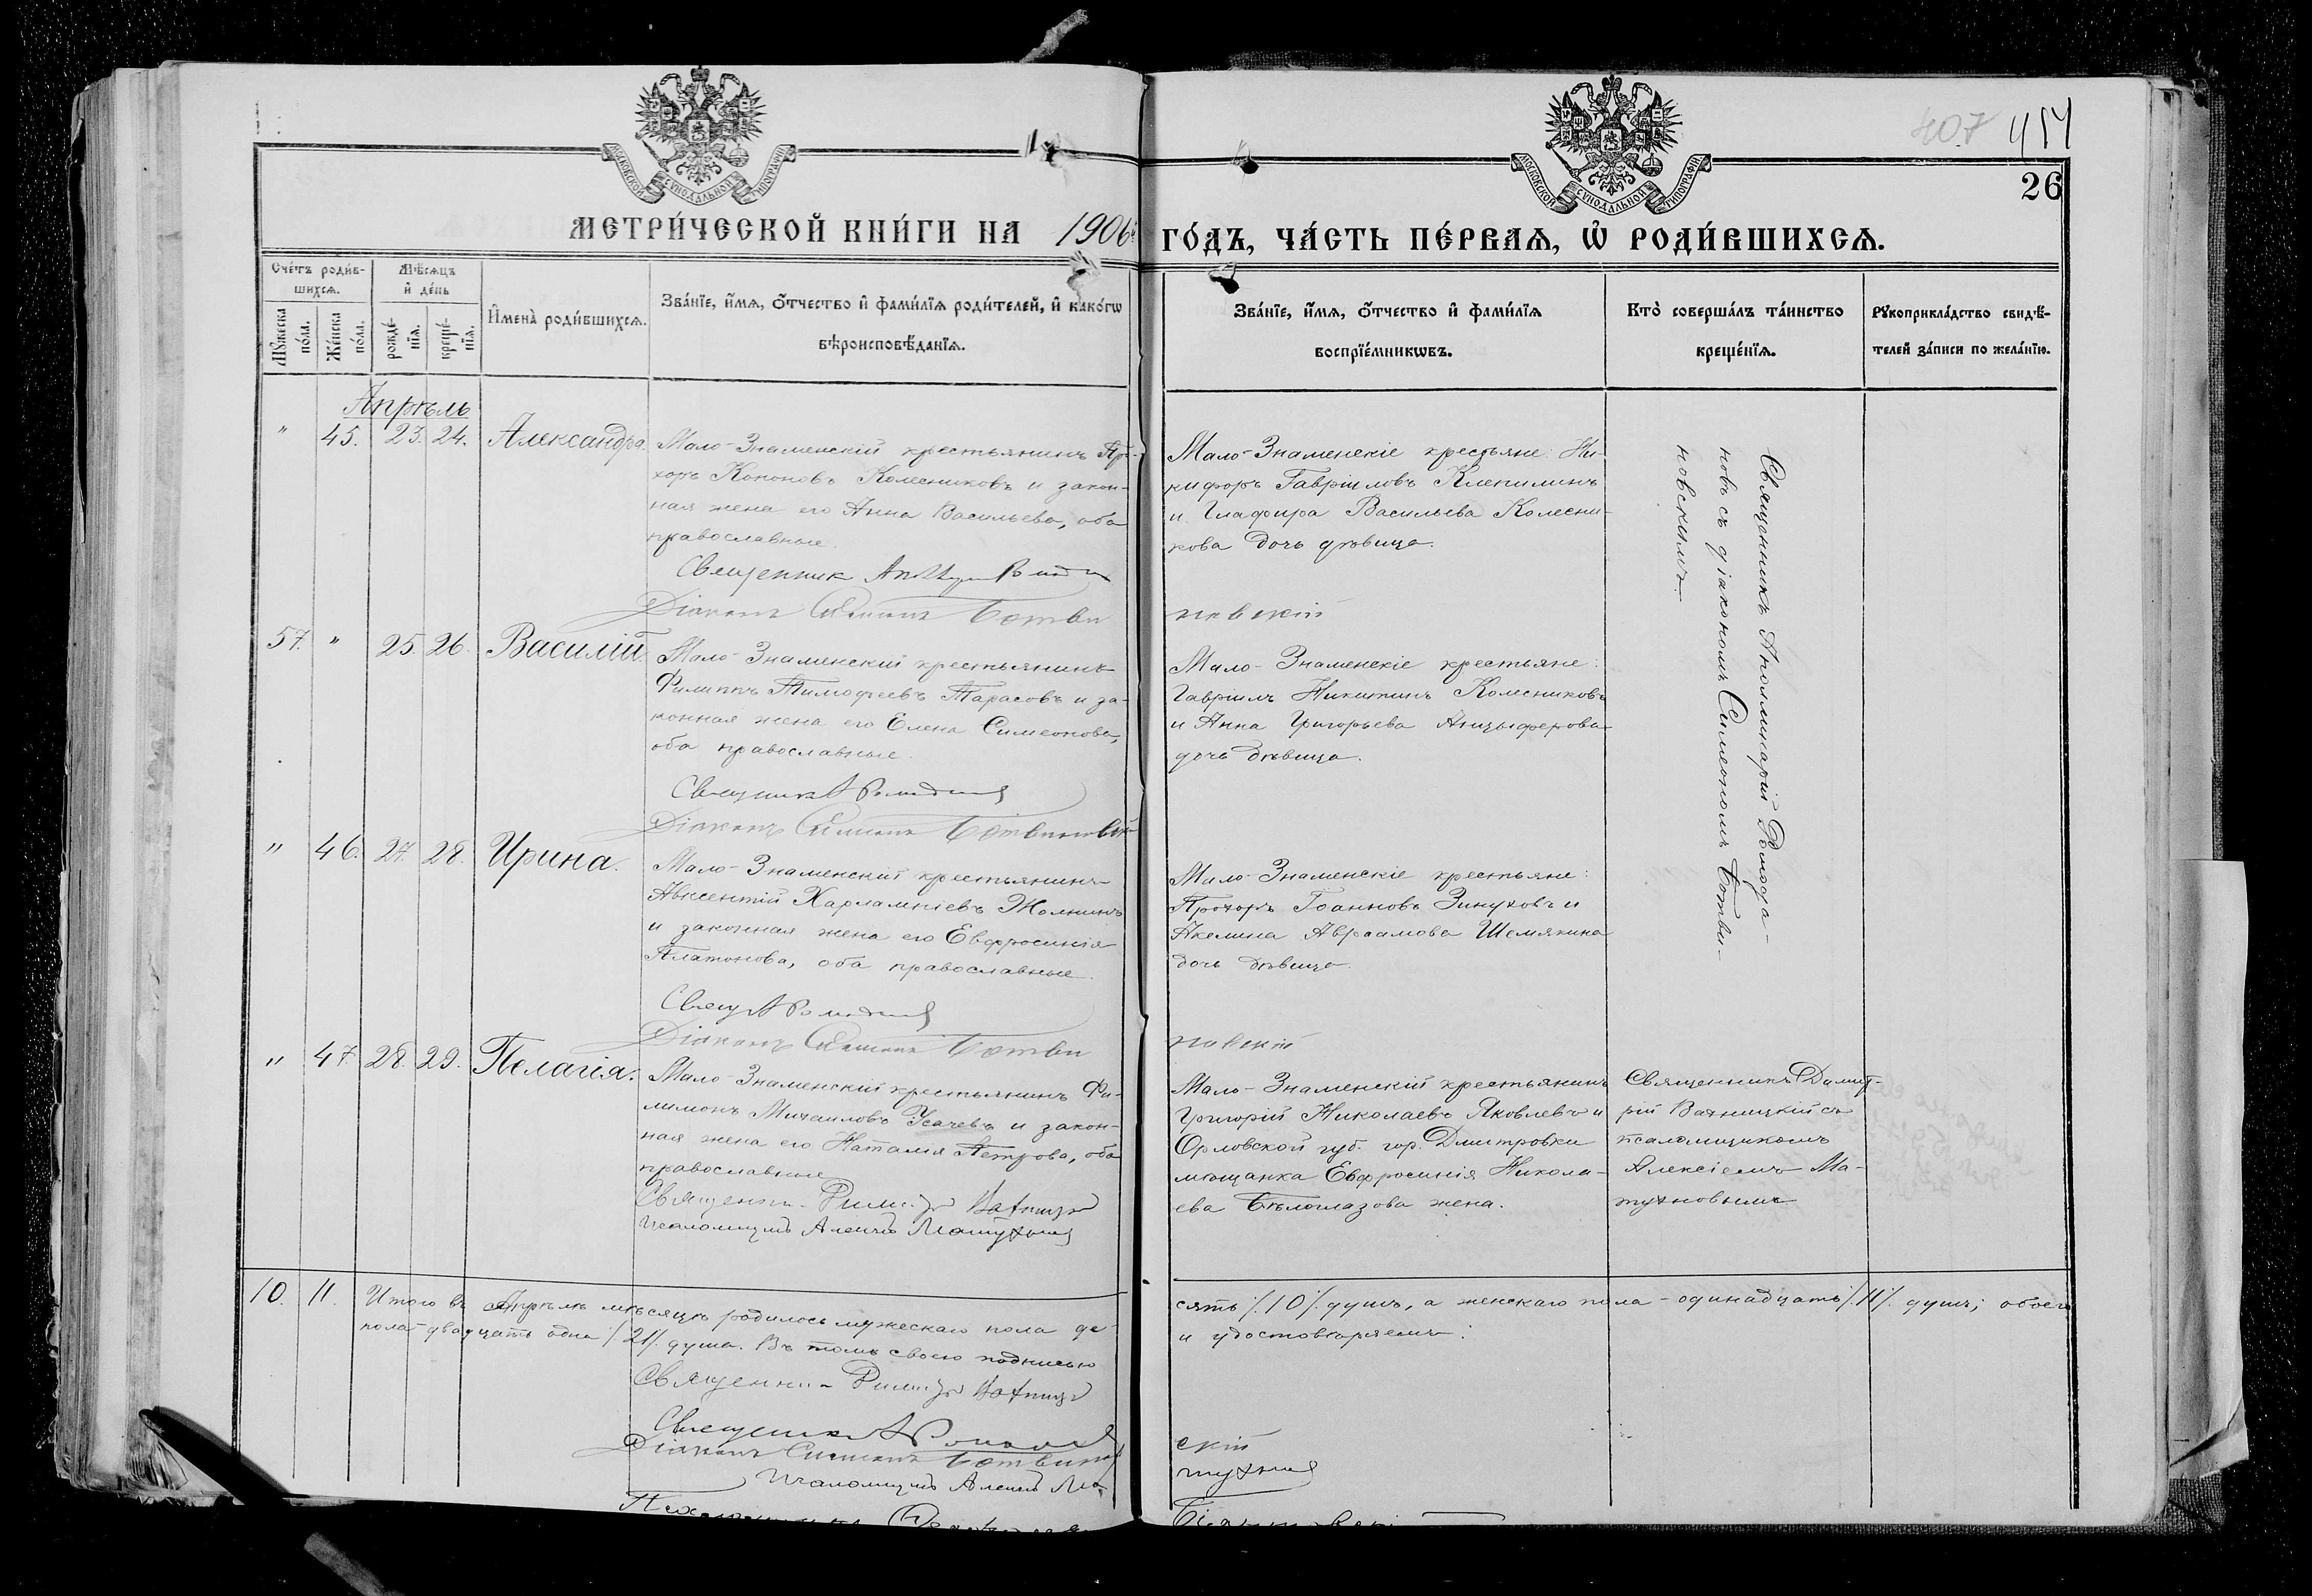 МОСКОВСКОЙ СѴНОДАЛЬНОЙ ТИПОГРАФІИ
МОСКОВСКОЙ СѴНОДАЛЬНОЙ ТИПОГРАФІИ
407
26
МЕТРИ́ЧЕСКОЙ КНИ́ГИ НА 1906й ГО́ДЪ, ЧА́СТЬ ПЕ́РВАѦ, Ѡ҆ РОДИ́ВШИХСѦ.
Сче́тъ роди́в-
шихсѧ.
Мꙋ́жеска
по́ла.
Же́нска
по́ла.
Мѣ́сѧцъ
и҆ де́нь
рожде́-
нїѧ.
креще́-
нїѧ.
И҆мена̀ роди́вшихсѧ.
Зва́нїе, и҆́мѧ, ѻ҆́тчество и҆ фами́лїѧ роди́телей, и҆ како́гѡ
вѣроисповѣ́данїѧ.
Зва́нїе, и҆́мѧ, ѻ҆́тчество и҆ фами́лїѧ
воспрїе́мникѡвъ.
Кто̀ соверша́лъ та́инство
креще́нїѧ.
Рꙋкоприкла́дство свидѣ́-
телей за́писи по жела́нїю.
Апрѣль
" 45. 23. 24. Александра.
Мало-Знаменскій крестьянинъ
Кононовъ Колесниковъ и закон-
ная жена его Анна Васильева, оба
православные.
Священник
Діаконъ Симеонъ Ботви
Мало-Знаменскіе крестьяне: Ни-
кифоръ Гавріиловъ Клепининъ
и Глафира Васильева Колесни-
кова дочь дѣвица.
новскій
Священникъ Аполлинарій Ромода-
новъ съ діакономъ Симеономъ Ботви-
новскимъ.
57. " 25. 26. Василій.
Мало-Знаменскій крестьянинъ
Филиппъ Тимофеевъ Тарасовъ и за-
конная жена его Елена Симеонова,
оба православные.
Діаконъ Симеонъ Ботвиновскій
Мало-Знаменскіе крестьяне:
Гавріилъ Никитинъ Колесниковъ
и Анна Григорьева Анцыферова
дочь дѣвица.
" 46. 27. 28. Ирина.
Мало-Знаменскій крестьянинъ
Авксентій Харлампіевъ Жолнинъ
и законная жена его Евфросинія
Платонова, оба православные.
Діаконъ Симеонъ Ботви
Мало-Знаменскіе крестьяне:
Прохоръ Іоанновъ Зинуховъ и
Акелина Авраамова Шемякина
дочь дѣвица.
новскій
" 47. 28. 29. Пелагія.
Мало-Знаменскій крестьянинъ Фи-
лимонъ Михаиловъ Усачевъ и закон-
ная жена его Наталія Петрова, оба
православные
Псаломщикъ Алексій Матухновъ
Мало-Знаменскій крестьянинъ
Григорій Николаевъ Яковлевъ и
Орловской губ. гор. Дмитровки
мѣщанка Евфросинія Никола-
ева Бѣлоглазова жена.
Священникъ Димит-
рій Вахницкій съ
псаломщикомъ
Алексіемъ Ма-
тухновымъ
10. 11. Итого въ Апрѣлѣ мѣсяцѣ родилось мужескаго пола де-
сять /10/ душъ, а женскаго пола - одинадцать /11/ душъ; обоего
пола - двадцать одна /21/ душа. Въ томъ своею подписью
и удостовѣряемъ:
Діаконъ Симеонъ Ботвинов
скій
Псаломщикъ Алексій Ма-
тухновъ